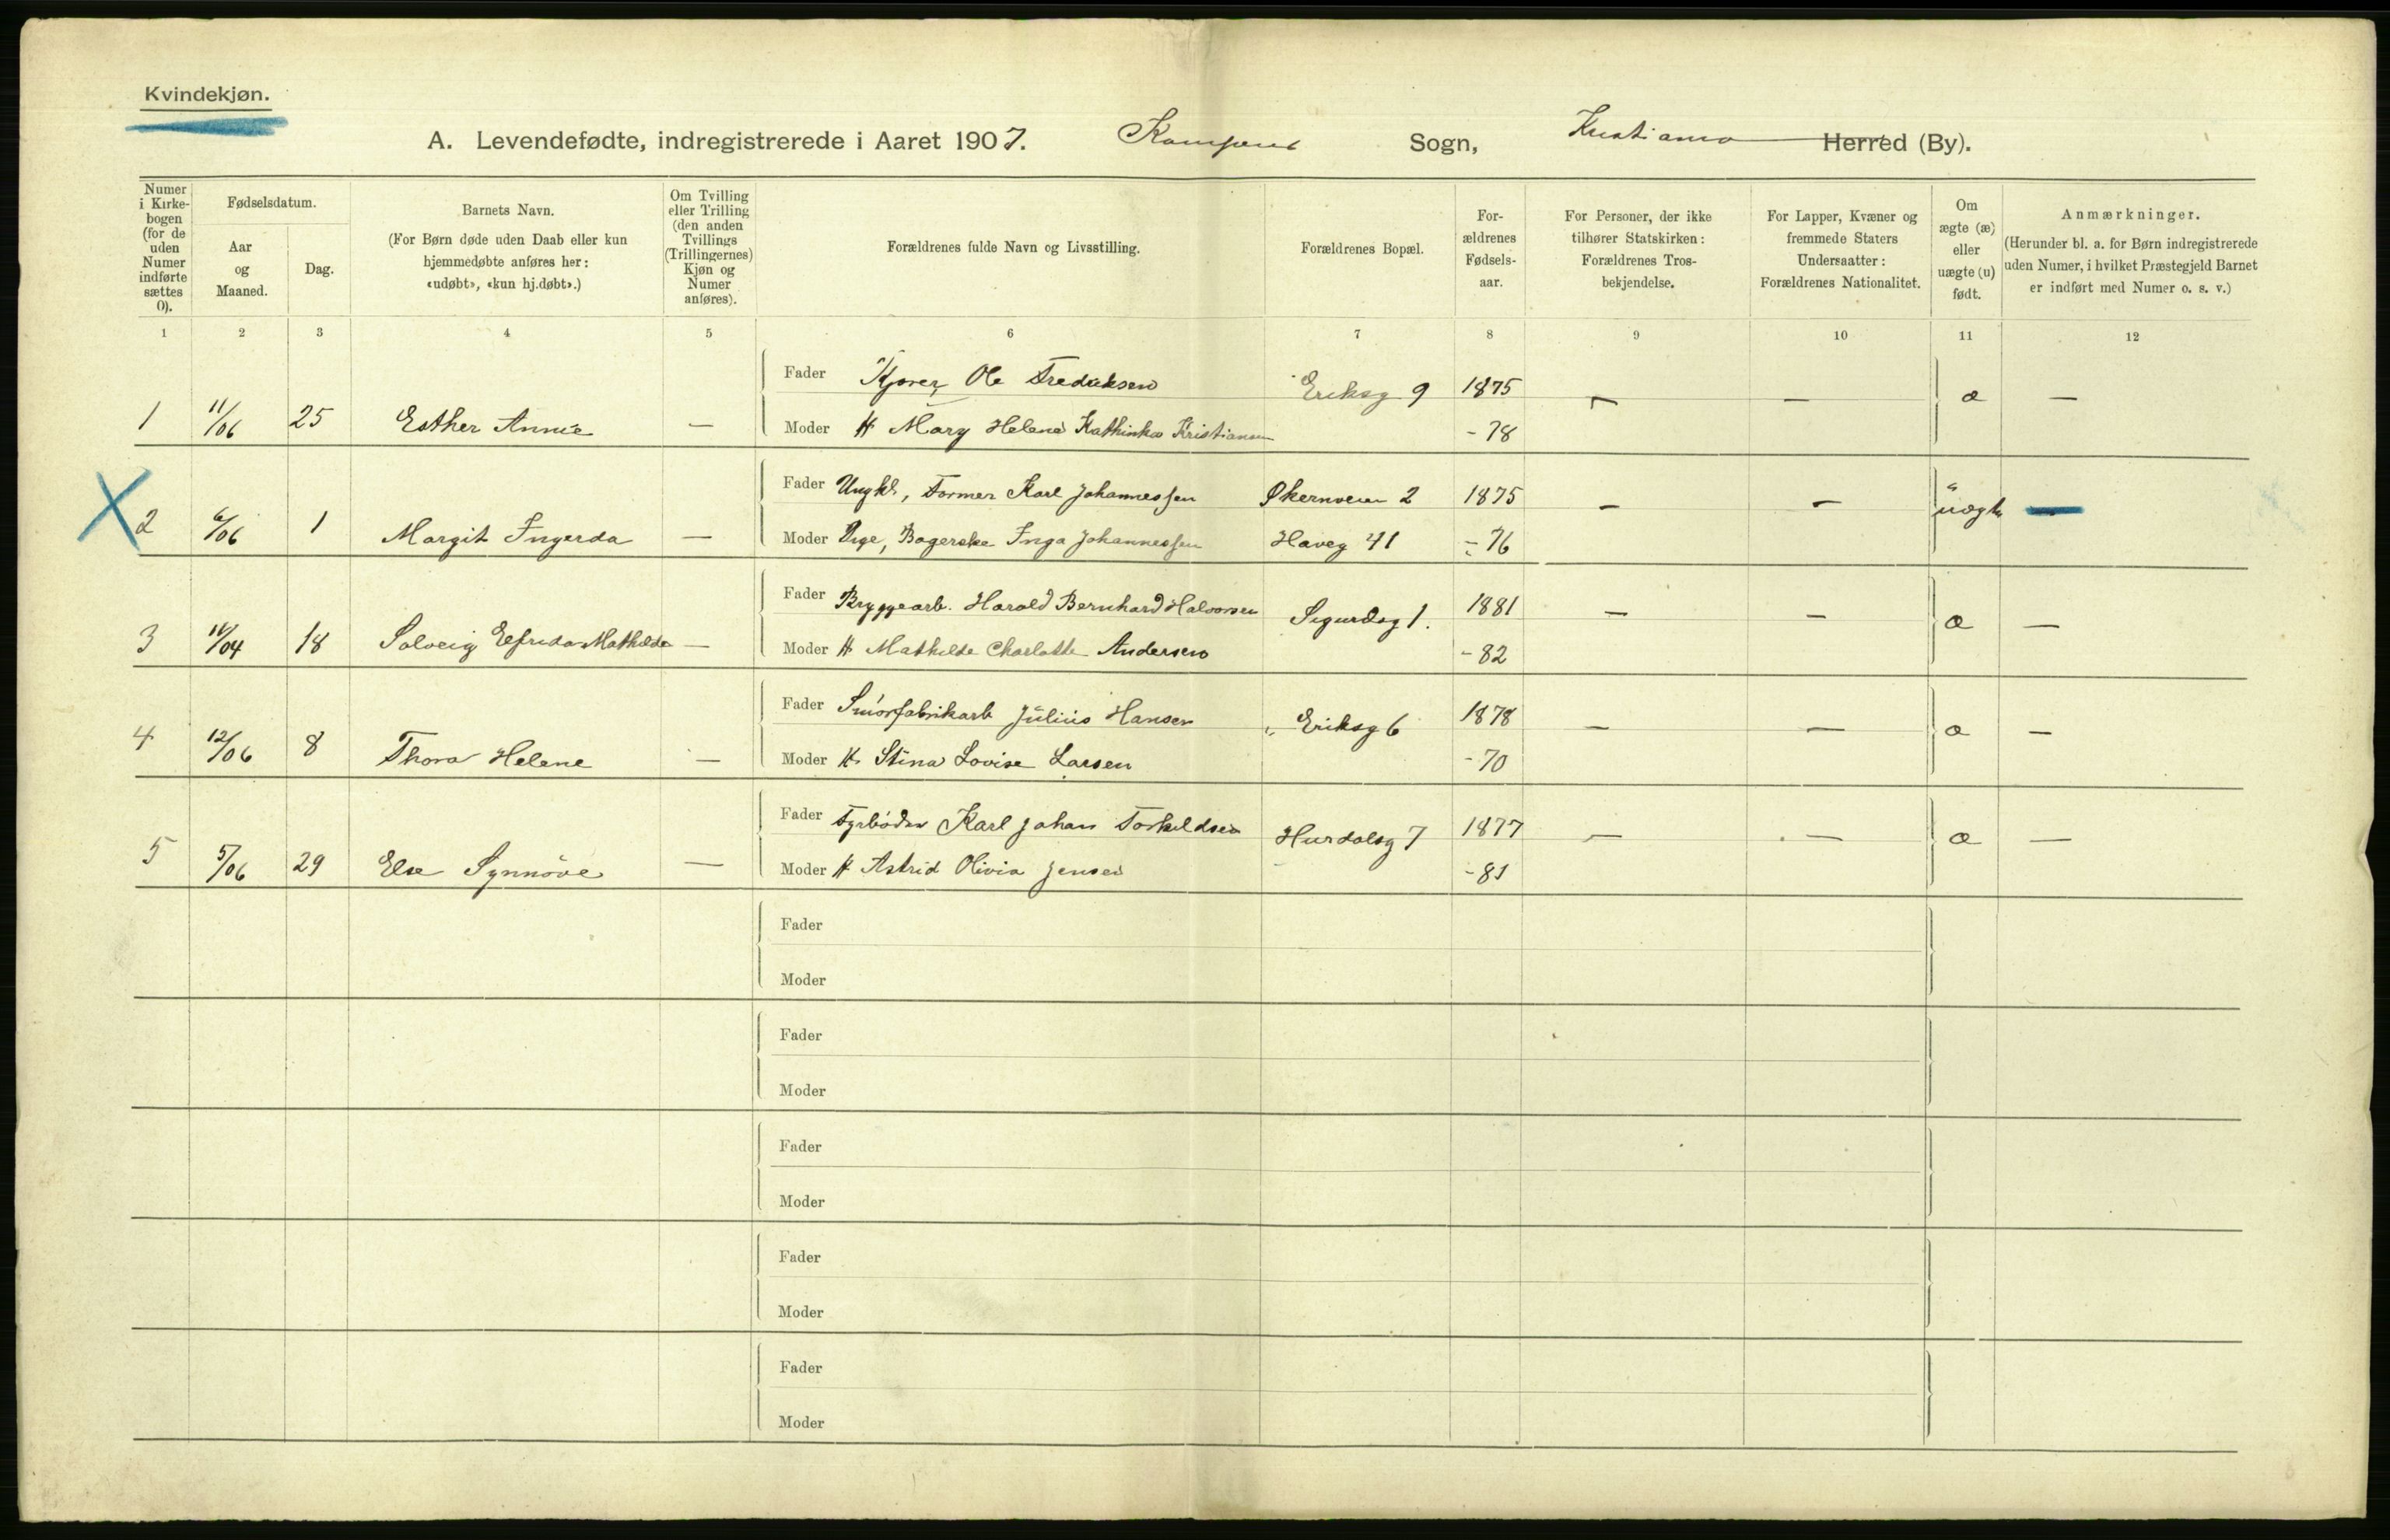 Kvindekjøn.
A. Levendefødte, indregistrerede i Aaret 1907. Kampens Sogn, Kristiania Herred (By).
Numer i Kirke-bogen (for de uden Numer indførte sættes 0).
Fødselsdatum.
Aar og Maaned.
Dag.
Barnets Navn.
(For Børn døde uden Daab eller kun hjemmedøbte anføres her: «udøbt», «kun hj.døbt».)
Om Tvilling eller Trilling (den anden Tvillings (Trillingernes) Kjøn og Numer anføres).
Forældrenes fulde Navn og Livsstilling.
Forældrenes Bopæl.
For-ældrenes Fødsels-aar.
For Personer, der ikke tilhører Statskirken: Forældrenes Tros-bekjendelse.
For Lapper, Kvæner og fremmede Staters Undersaatter: Forældrenes Nationalitet.
Om ægte (æ) eller uægte (u) født.
Anmærkninger.
(Herunder bl. a. for Børn indregistrerede uden Numer, i hvilket Præstegjeld Barnet er indført med Numer o. s. v.)
1 2 3 4 5 6 7 8 9 10 11 12
Fader Kjører Ole Fredriksen Eriksg 9 1875
1 11/06 25 Esther Annie — Moder H Mary Helene Kathinka Kristiansen - 78 — — æ —
Fader Ungkl., Former Karl Johannessen Økernveien 2 1875
2 6/06 1 Margit Ingerda — Moder Pige, Bagerske Inga Johannessen Haveg 41 - 76 — — uægte —
Fader Bryggearb. Harald Bernhard Halvorsen Sigurdsg 1. 1881
3 11/04 18 Solveig Elfrida Mathilde — Moder H Mathilde Charlotte Andersen - 82 — — æ —
Fader Smörfabrikarb Julius Hansen Eriksg 6 1878
4 12/06 8 Thora Helene — Moder H. Stina Lovise Larsen - 70 — — æ —
Fader Fyrböder Karl Johan Torkildsen Hurdalsg 7 1877
5 5/06 29 Else Synnöve — Moder H Astrid Olivia Jensen - 81 — — æ —
Fader
Moder
Fader
Moder
Fader
Moder
Fader
Moder
Fader
Moder